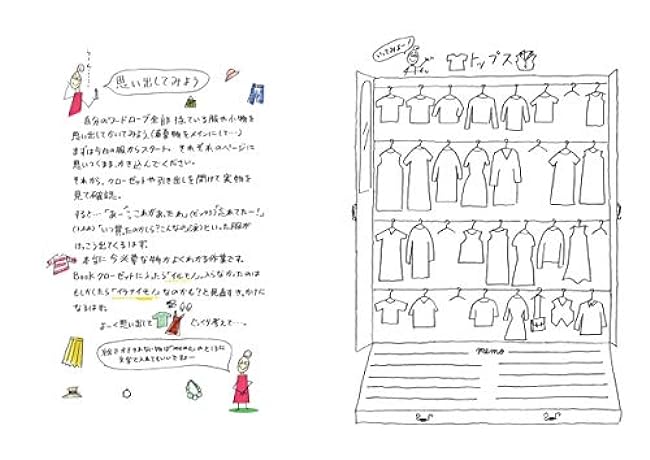 う〜ん…
思い出してみよう
自分のワードローブ全部 持っている服や小物を
思い出してかいてみよう。(夏物をメインにして…)
まずは今の服からスタート。それぞれのページに
思いつくまま、かき込んでください。
それから、クローゼットや引き出しを開けて実物を
見て確認。
すると…「あー、これがあったわ」(ビックリ)「忘れてたー!」
「いつ買ったのかしら?こんなの」(涙)といった服が
けっこう出てくるはず。
本当に今必要な物がよくわかる作業です。
Bookクローゼットに入ったら「イルモノ」、入らなかったのは
もしかしたら「イラナイモノ」なのかも?と見直すきっかけに
なるはず。
よーく思い出して じっくり考えて…。
文字で入れてもいいですよー
いってみよー!
トップス
memo